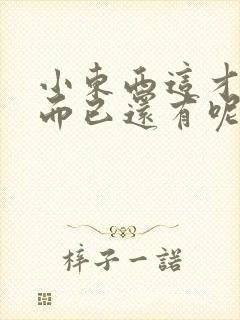 小東西這才
而已還有呢
梓子一諾